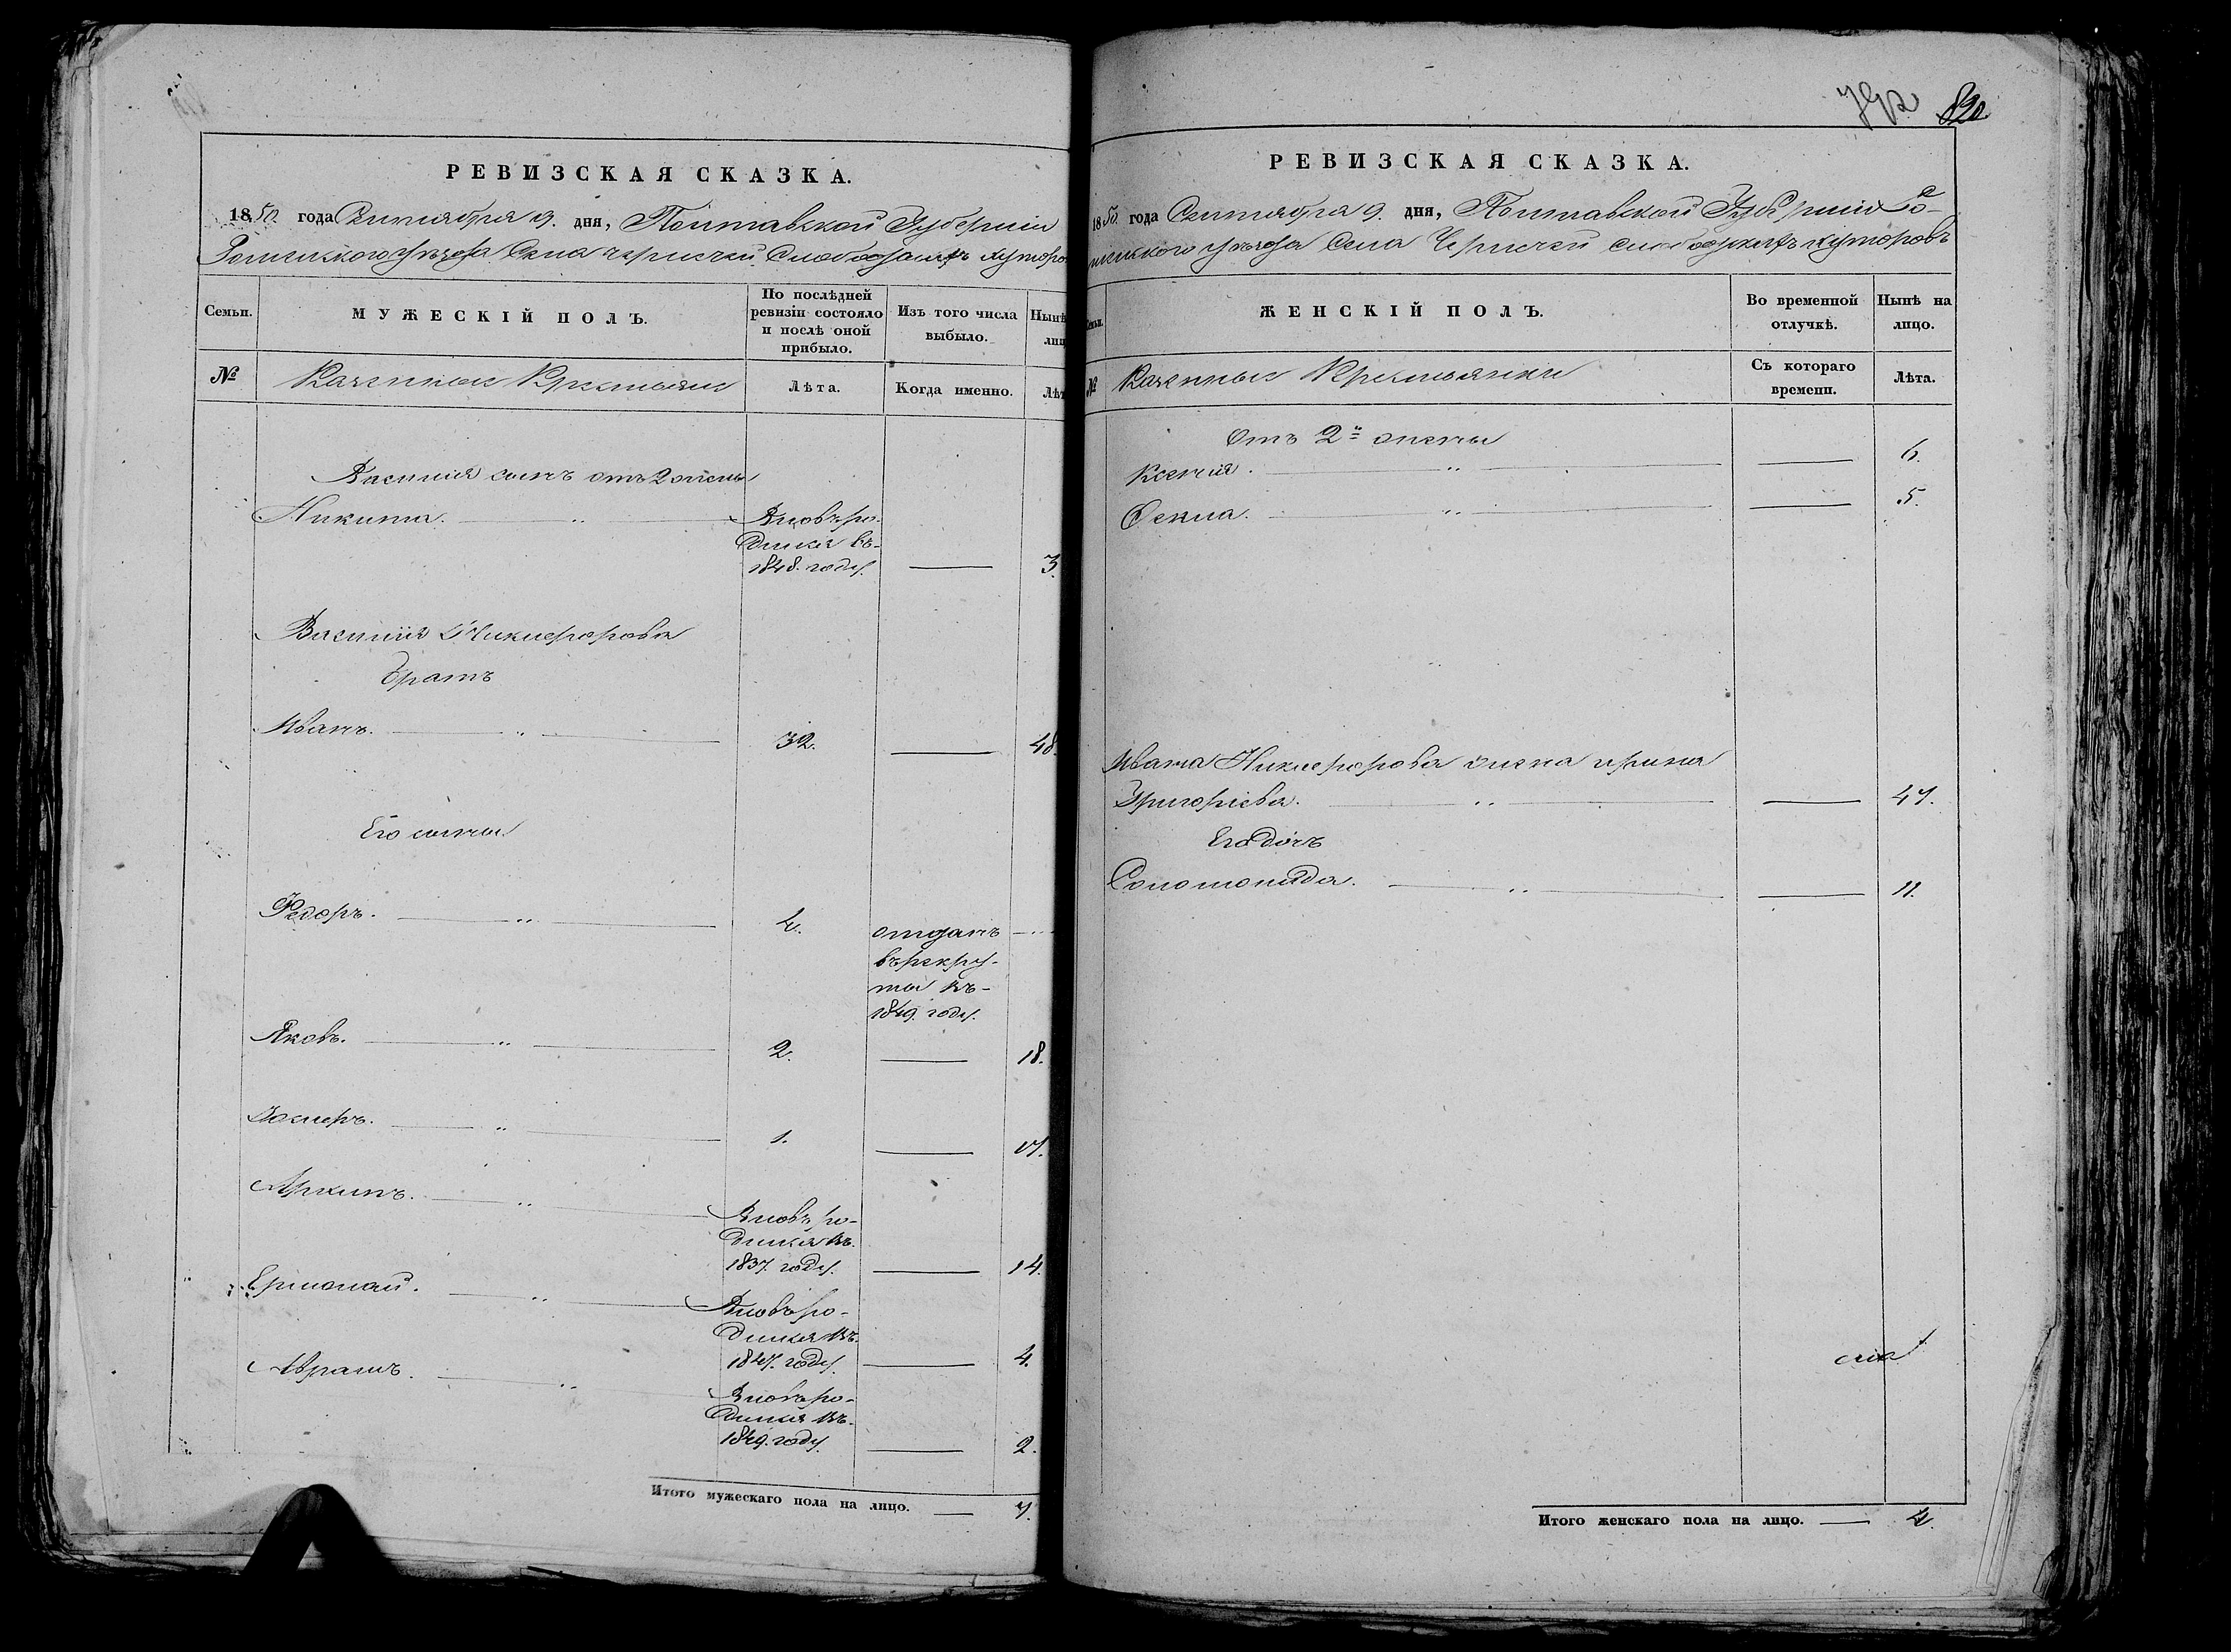 РЕВИЗСКАЯ СКАЗКА.
1850. года Сентября 9. дня, Полтавской Губерніи
Роменского уѣзда Села слободскихъ хуторо
Семьи.
МУЖЕСКІЙ ПОЛЪ.
По послѣдней ревизіи состояло и послѣ оной прибыло.
Изъ того числа выбыло.
Нынѣ лиц
№
Казенные Крестьяне
Лѣта.
Когда именно.
Лѣт
Василия сынъ отъ 2 жены
Никита. — „ — Вновь ро-
дился въ-
1848. году. — 3.
Василия Никифорова
братъ
Иванъ. — „ — 32. — 48.
Его сыны
Федоръ. — „ — 4. отданъ — „ —
въ рекру-
ты въ-
1849. году.
Яковъ. — „ — 2. — 18.
— „ — 1. — 17.
Архипъ. — „ — Вновь ро-
дился въ.
1837. году. — 14.
Ермолай. — „ — Вновь ро-
дился въ.
1847. году. — 4.
Аврамъ. — „ — Вновь ро-
дился въ.
1849. году. — 2.
Итого мужескаго пола на лицо. — 7.
820.
РЕВИЗСКАЯ СКАЗКА.
1850. года Сентября 9. дня, Полтавской Губерніи Ро-
менского уѣзда Села слободскихъ хуторовъ
Семьи.
ЖЕНСКІЙ ПОЛЪ.
Во временной отлучкѣ.
Нынѣ на лицо.
№
Казенные Крестьянки
Съ котораго времени.
Лѣта.
Отъ 2й жены
Ксения. — „ — — 6.
Фекла. — „ — — 5.
Ивана Никифорова жена ирина
Григориева. — „ — — 47.
Его дочь
Соломонида. — „ — — 11.
Итого женскаго пола на лицо. — 4.